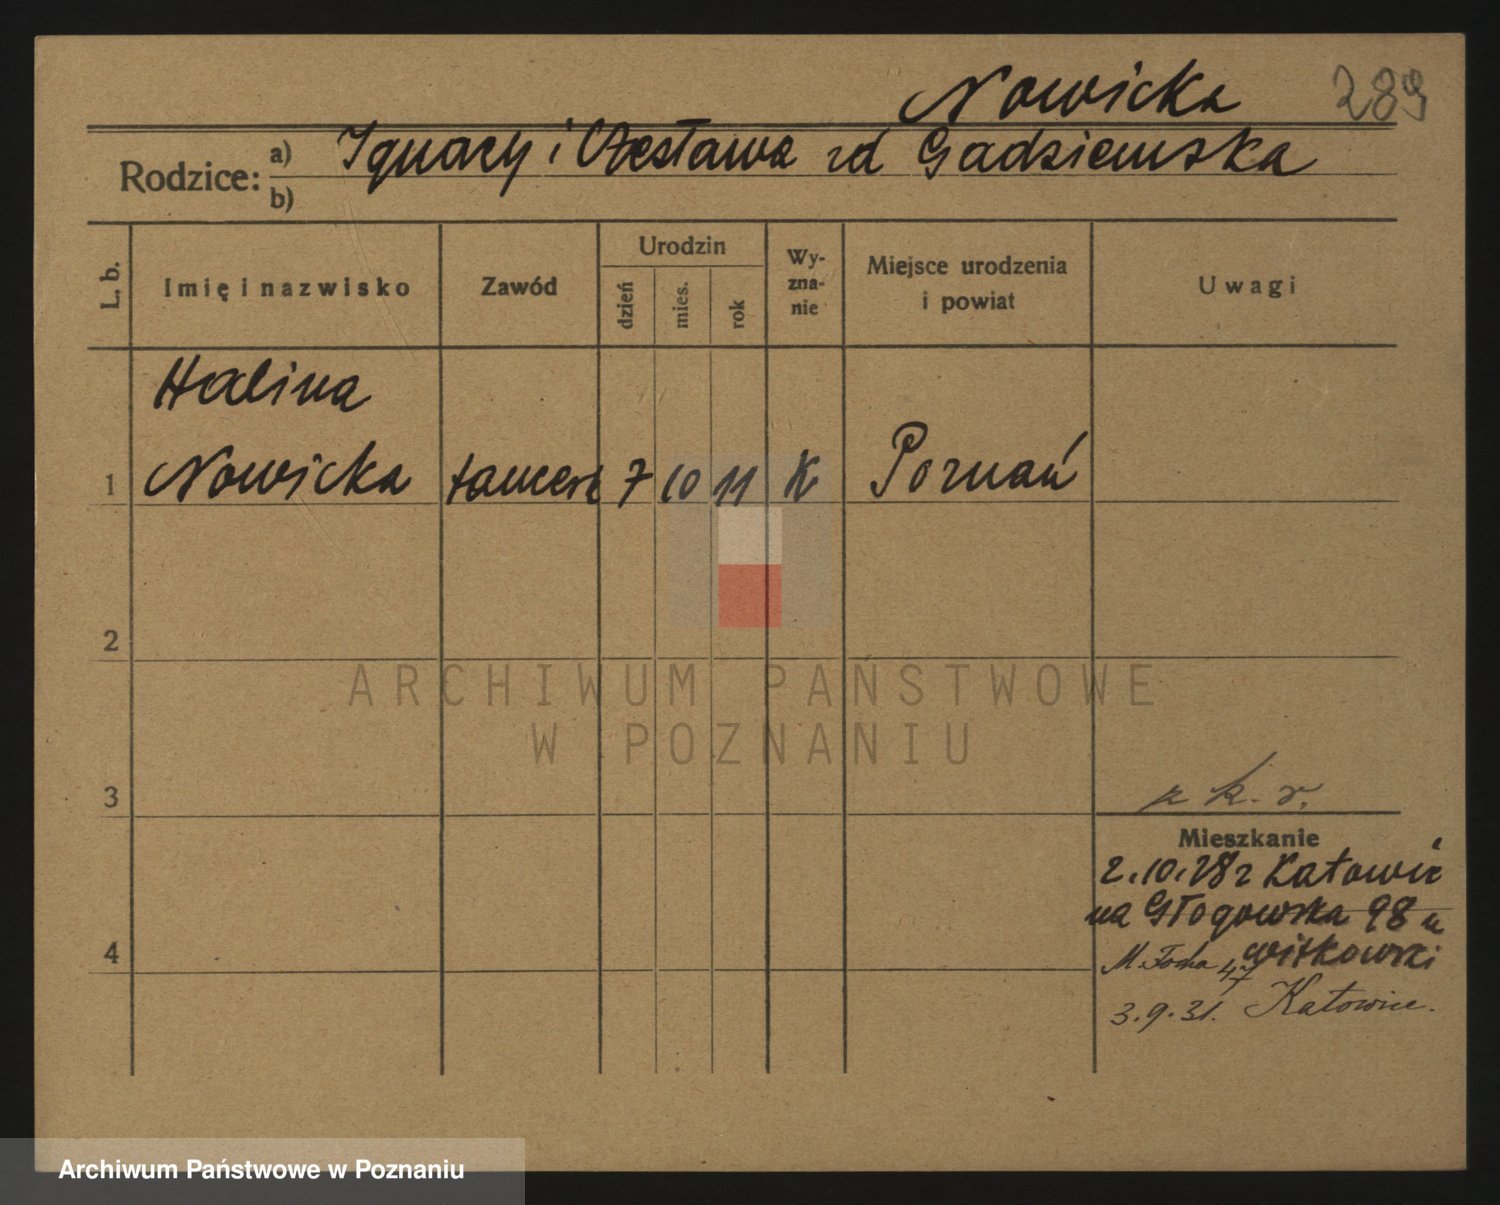 Nowicka
289
Rodzice: a) Ignacy i Czesława zd Gadziemska
b)
L. b.
Imię i nazwisko
Zawód
Urodzin
dzień
mies.
rok
Wy-
zna-
nie
Miejsce urodzenia
i powiat
Uwagi
Halina
1 Nowicka tancerk 7 10 11 K Poznań
2
ARCHIWUM PAŃSTWOWE
W POZNANIU
3
p. k. r.
Mieszkanie
2.10.28 z Katowic
na Głogowska 98 u
Witkowski
M. Focha 47
3.9.31. Katowice.
4
Archiwum Państwowe w Poznaniu